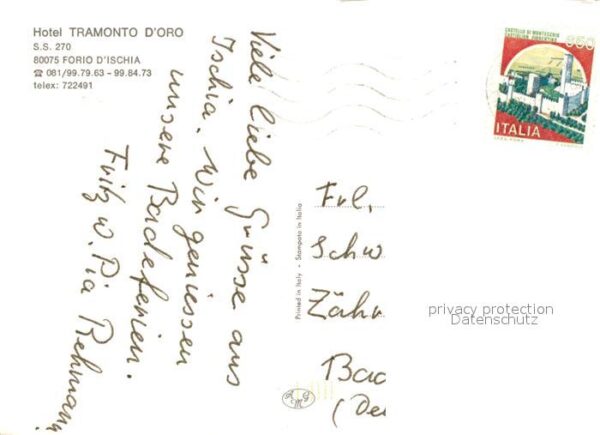 Hotel TRAMONTO D'ORO
S.S. 270
80075 FORIO D'ISCHIA
☎ 081/99.79.63 - 99.84.73
telex: 722491
Viele liebe Grüsse aus
Ischia. Wir geniessen
unsere Badeferien.
Fritz u. Pia Rehmann
Printed in Italy • Stampato in Italia
CASTELLO DI MONTECCHIO
CASTIGLION FIORENTINO
650
ITALIA
Frl.
Schw
Zähr
Bad
(De
privacy protection
Datenschutz